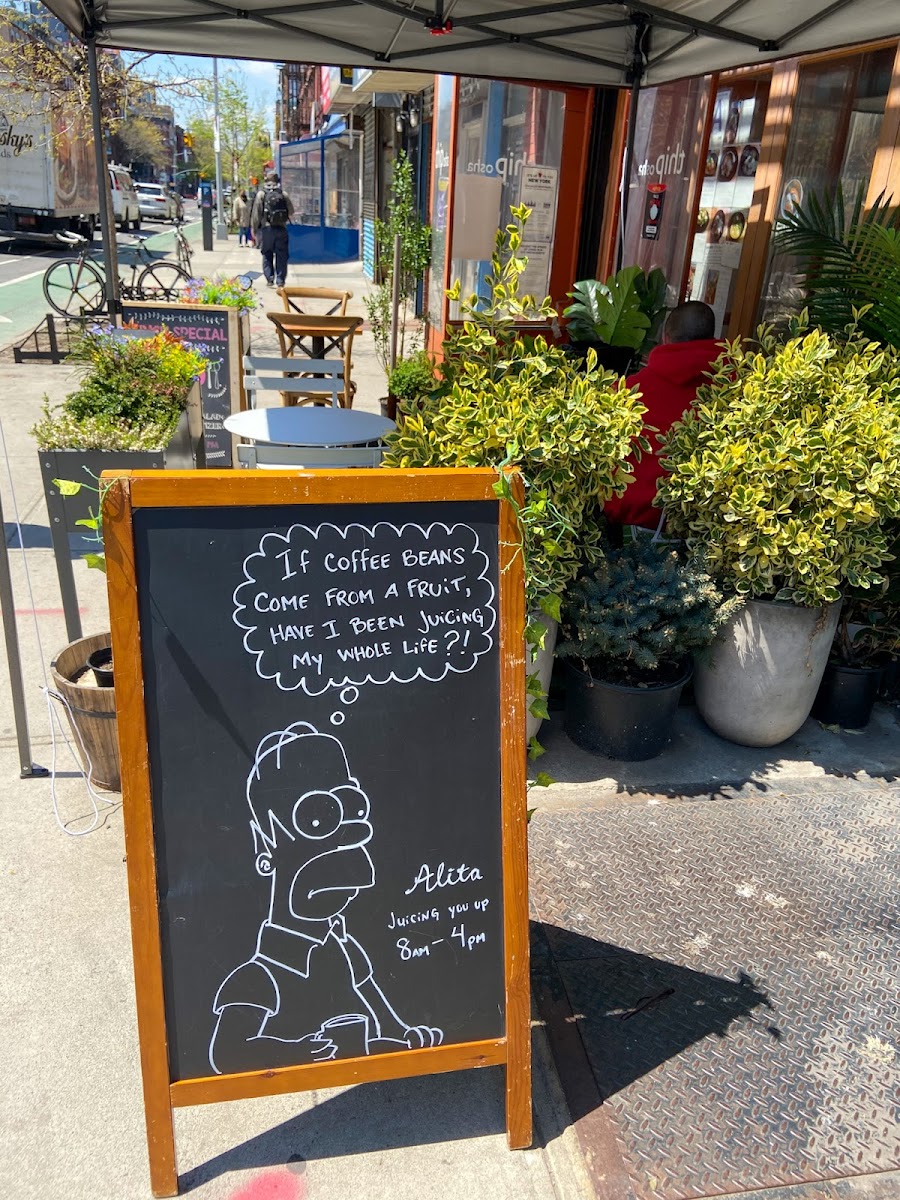 If COFFEE BEANS
COME FROM A FRUIT,
HAVE I BEEN JUICING
MY WHOLE LIFE?!
Alita
JUICING YOU UP
8AM – 4PM
SPECIAL
thip osha
NEW YORK